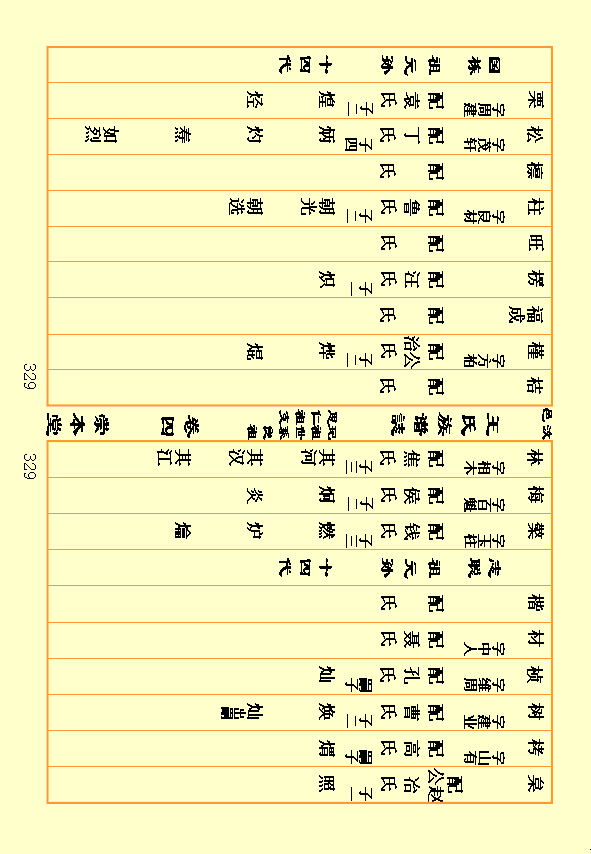 国栋 祖元孙 十四代
栗 字周建 配袁氏 子二 煌 烃
松 字茂轩 配丁氏 子四 炳 灼 焘 如烈
檩 配氏
柱 字良材 配鲁氏 子二 朝光 朝选
旺 配氏
楞 配汪氏 子一 炽
福成 配氏
槿 字方栢 配公治氏 子二 烨 焜
桔 配氏
329
王氏族谱誌 卷四 崇本堂
329
林 字相木 配焦氏 子三 其河 其汉 其江
梅 字百魁 配侯氏 子二 炯 炎
棠 字玉柱 配钱氏 子三 燃 炉 焔
志聪 祖元孙 十四代
楷 配氏
材 字中人 配聂氏
桢 字维周 配孔氏 嗣子 灿
树 字建业 配曹氏 子二 焕 灿出嗣
栲 字山有 配高氏 嗣子 焆
臬 配赵公冶氏 子一 照